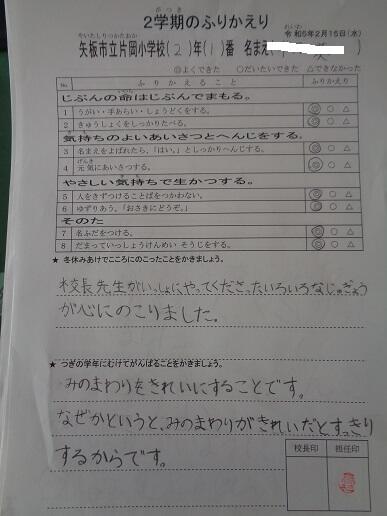 2学期のふりかえり
令和6年2月15日(水)
矢板市立片岡小学校(2)年(1)番 名まえ( )
◎よくできた ○だいたいできた △できなかった
ふりかえること ふりかえり
じぶんの命はじぶんでまもる。
1 うがい・手あらい・しょうどくをする。 ◎ ○ △
2 きゅうしょくをしっかりたべる。 ◎ ○ △
気持ちのよいあいさつとへんじをする。
3 名まえをよばれたら、「はい。」としっかりへんじする。 ◎ ○ △
4 元気にあいさつする。 ◎ ○ △
やさしい気持ちで生かつする。
5 人をきずつけることばをつかわない。 ◎ ○ △
6 ゆずりあう。「おさきにどうぞ。」 ◎ ○ △
そのた
7 名ふだをつける。 ◎ ○ △
8 だまっていっしょうけんめい そうじをする。 ◎ ○ △
★ 冬休みあけでこころにのこったことをかきましょう。
校長先生がいっしょにやってくださったいろいろなじゅぎょう
が心にのこりました。
★ つぎの学年にむけてがんばることをかきましょう。
みのまわりをきれいにすることです。
なぜかというと、みのまわりがきれいだとすっきり
するからです。
校長印 担任印